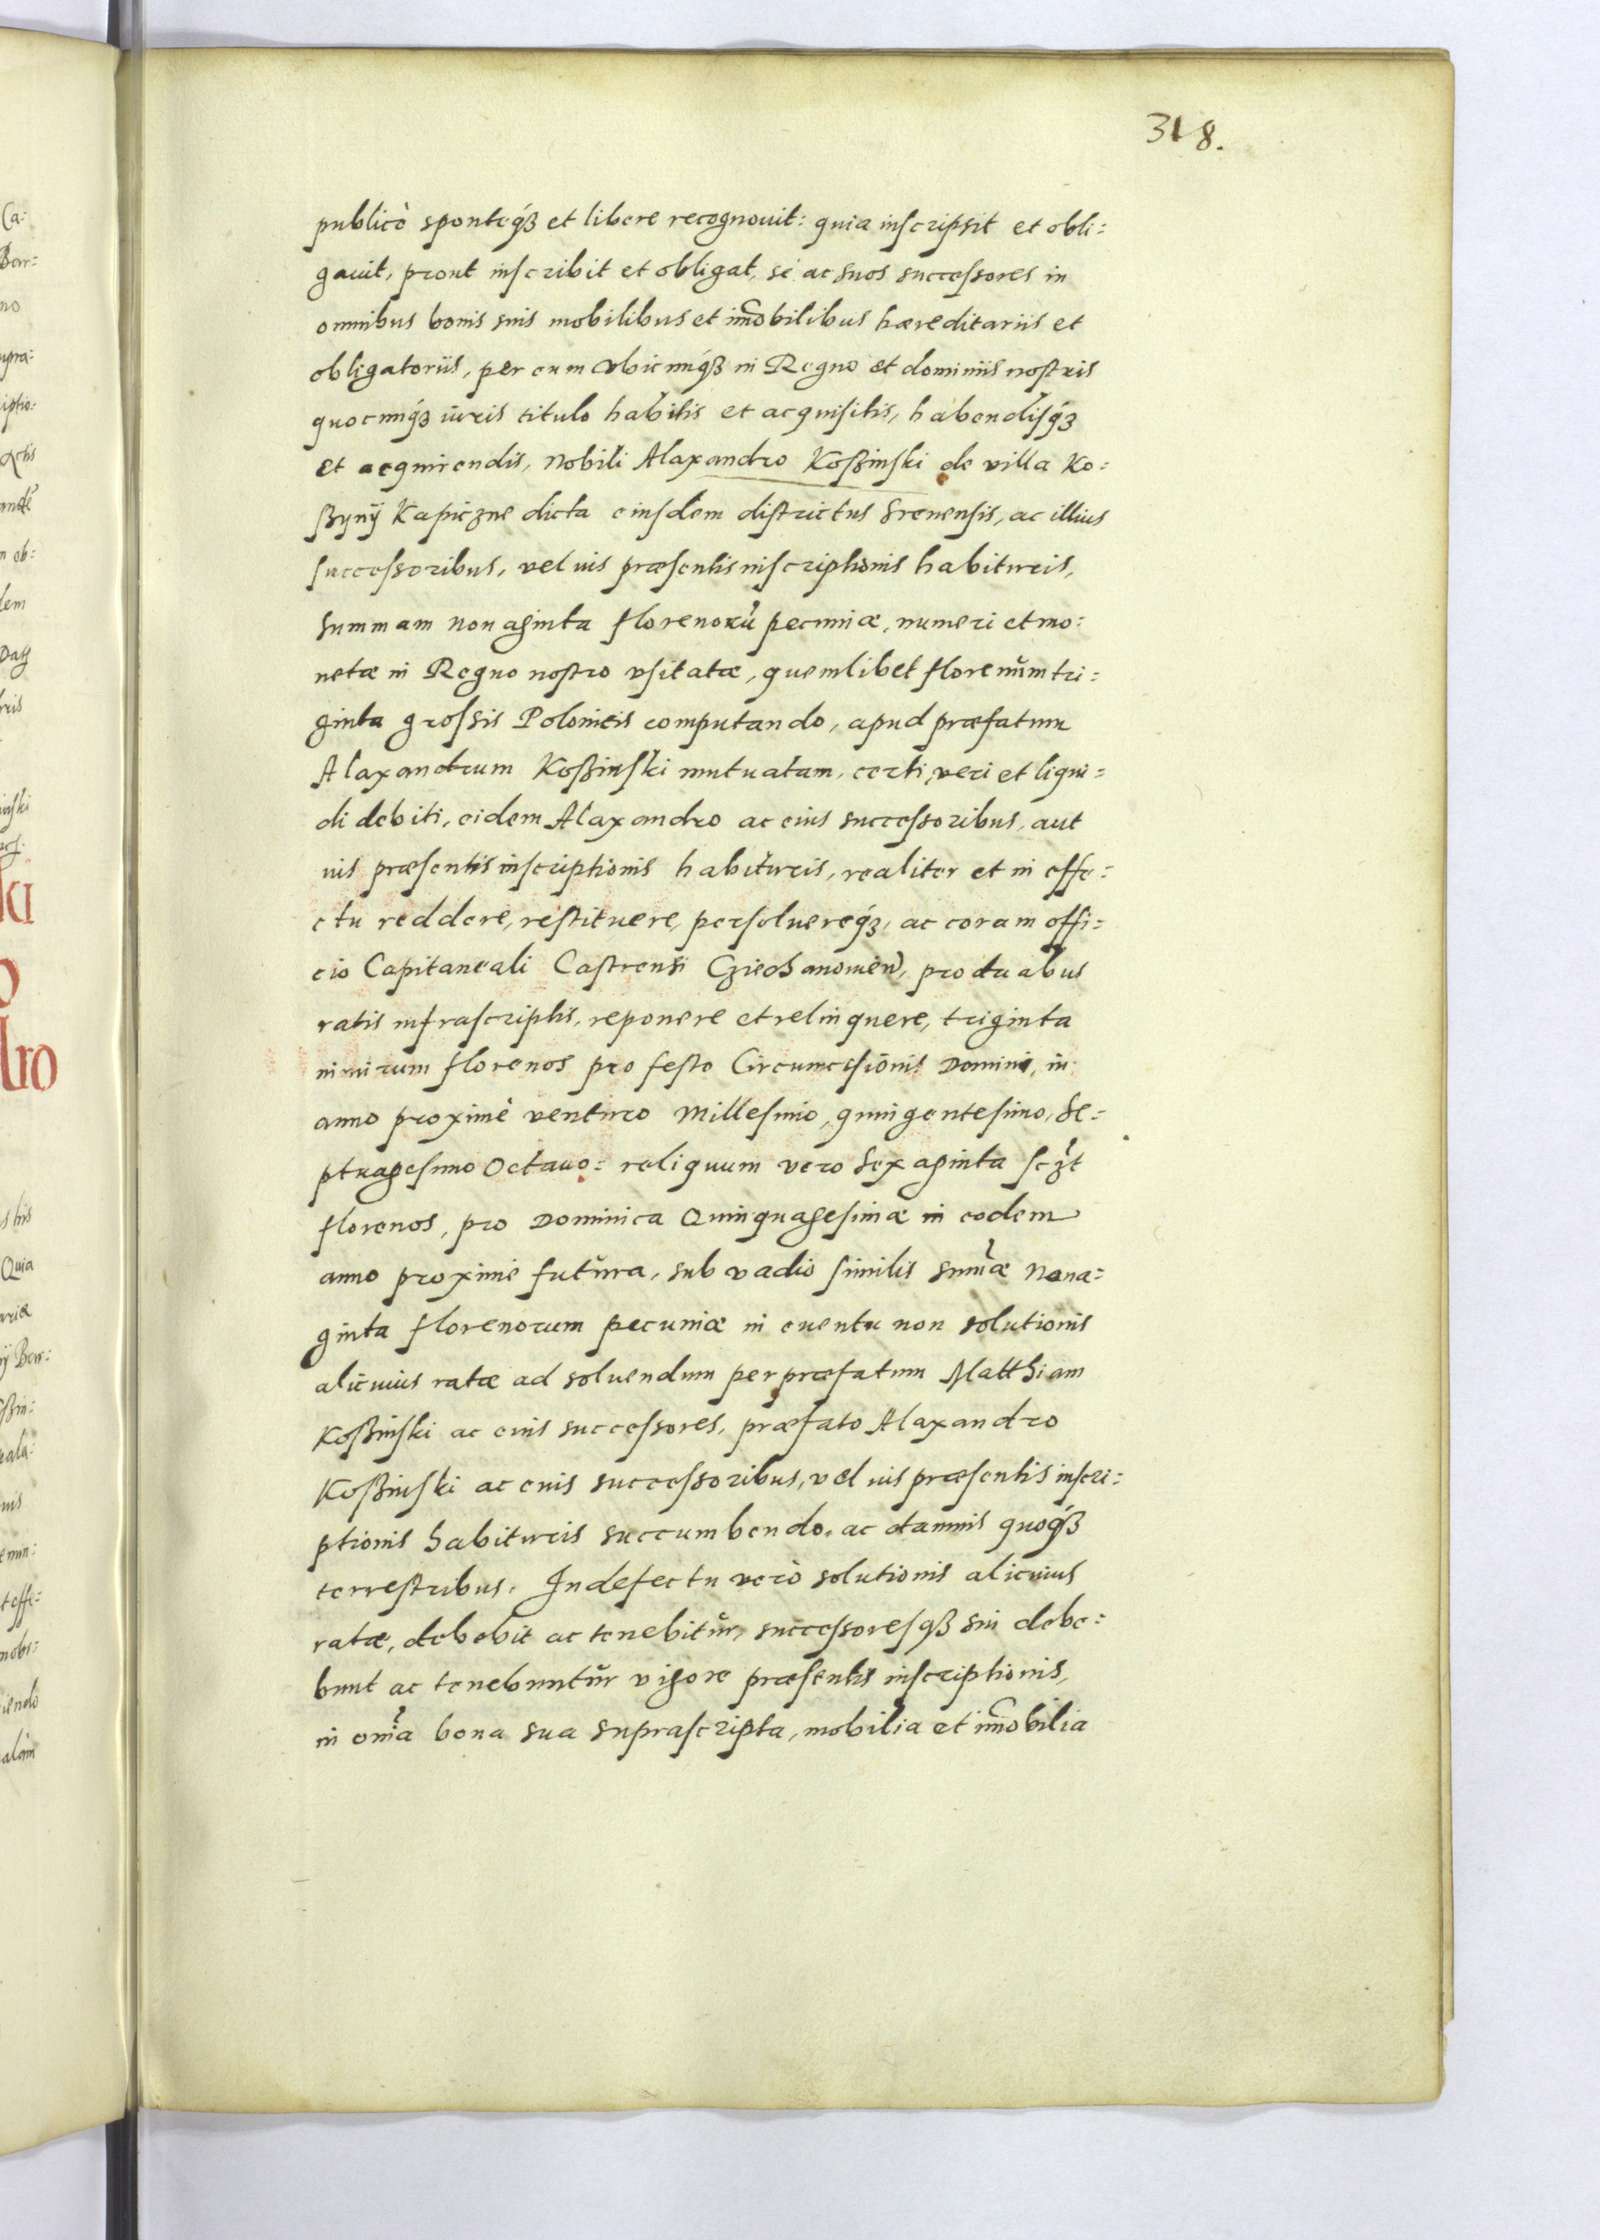 318.
publicè sponteq́ꝫ et libere recognouit: quia inscripsit et obli:
gauit, prout inscribit et obligat, se ac suos successores in
omnibus bonis suis mobilibus et im̃obilibus hæreditariis et
obligatoriis, per eum vbicunq́ꝫ in Regno et dominiis nostris
quocunq́ꝫ iuris titulo habitis et acquisitis, habendisq́ꝫ
et acquirendis, Nobili Alaxandro Koßinski de villa Ko:
ßynÿ Kapiczne dicta eiusdem districtus Srenensis, ac illius
successoribus, vel uis præsentis inscriptionis habituris,
summam nonaginta florenorũ pecuniæ, numeri et mo:
netæ in Regno nostro vsitatæ, quemlibet florenum tri:
ginta grossis Polonicis computando, apud præfatum
Alaxandrum Koßinski mutuatam, certi, veri et liqui:
di debiti, eidem Alaxandro ac eius successoribus, aut
uis præsentis inscriptionis habituris, realiter et in effe:
ctu reddere, restituere, persoluereq́ꝫ, ac coram offi:
cio Capitaneali Castrensi Cziechanomen̄, pro duabus
ratis infrascriptis, reponere et relinquere, triginta
nimirum florenos pro festo Circumcisionis Domini, in
anno proximè venturo Millesimo, quingentesimo, Se:
ptuagesimo Octauo: reliquum vero Sexaginta scꝫt
florenos, pro Dominica Quinquagesimæ in eodem
anno proxime futura, sub vadio similis sum̃æ Nona:
ginta florenorum pecuniæ in euentu non solutionis
alicuius ratæ ad soluendum per præfatum Matthiam
Koßinski ac eius successores, præfato Alaxandro
Koßinski ac euis successoribus, vel uis præsentis inscri:
ptionis habituris succumbendo, ac damnis quoq́ꝫ
terrestribus. In defectu verò solutionis alicuius
ratæ, debebit ac tenebitur, successoresqꝫ sui debe:
bunt ac tenebuntur vigore præsentis inscriptionis,
in om̃ia bona sua suprascripta, mobilia et im̃obilia